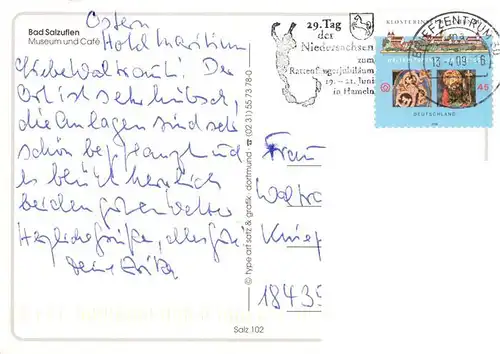 Bad Salzuflen
Museum und Café
Ostern
Hotel Maritim,
Liebe Waltraut! Der
Ort ist sehr hübsch,
die Anlagen sind sehr
schön bepflanzt und
es blüht herrlich
bei dem guten Wetter
Herzliche Grüße, alles Gute
Deine
29. Tag
der
Niedersachsen
zum
Rattenfängerjubiläum
19. – 21. Juni
in Hameln
BRIEFZENTRUM 30
13-4.09
45
DEUTSCHLAND
Frau
Waltra
Kniep
18439
© type art satz & grafik · dortmund · ☎ (02 31) 55 73 78-0
Salz 102